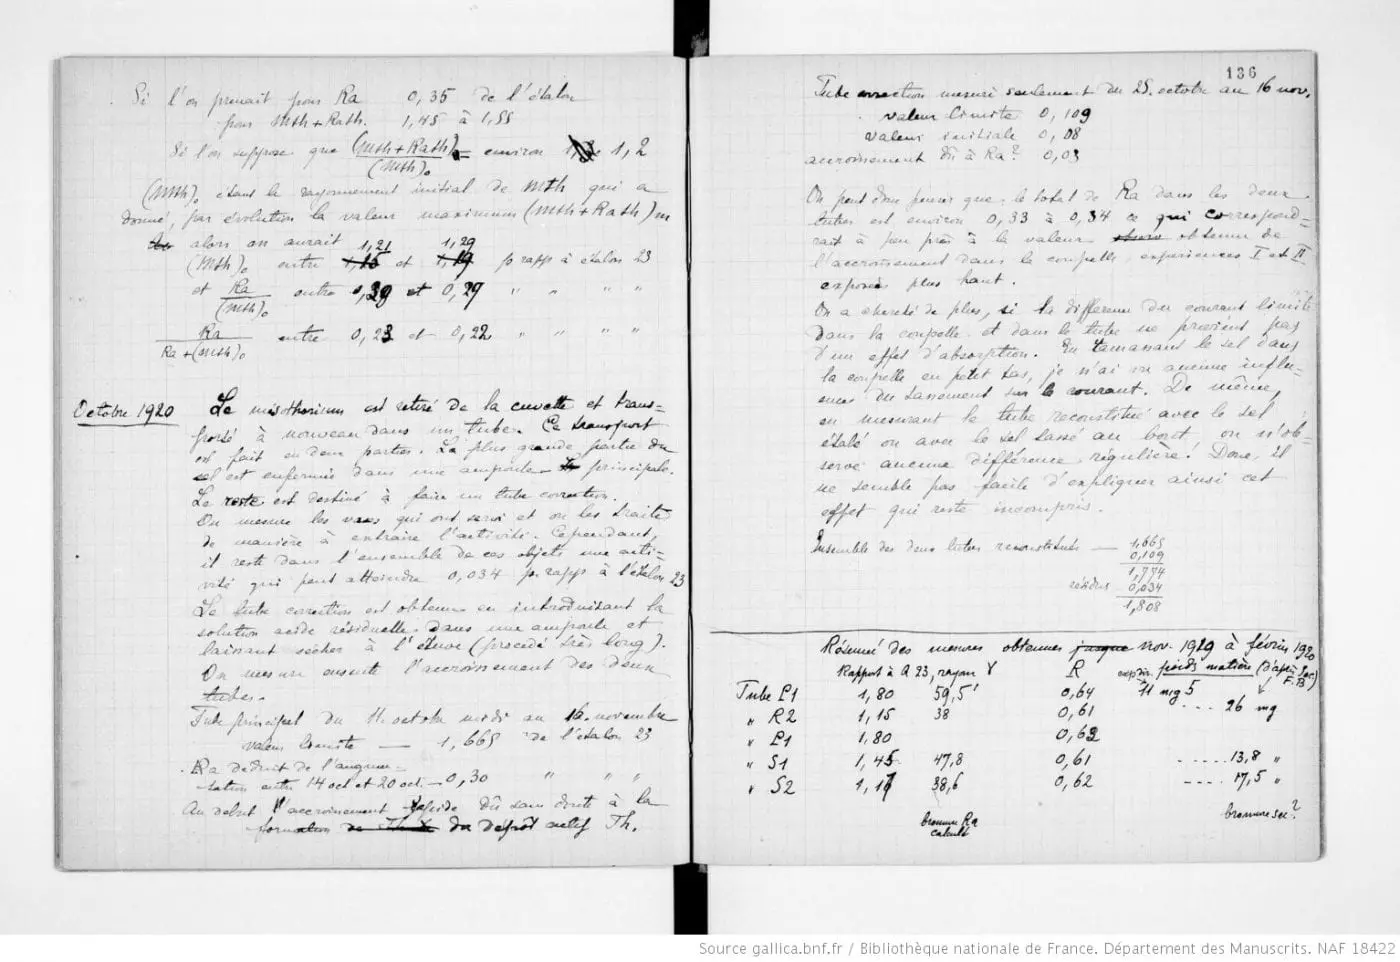 Si l'on prenait pour Ra 0,35 de l'étalon
pour Mth + Rath. 1,45 à 1,55
Si l'on suppose que (Mth + Rath)
(Mth)o = environ 1,2
(Mth)o étant le rayonnement initial de Mth qui a
donné, par évolution la valeur maximum (Mth + Rath)m
alors on aurait 1,21 1,29
(Mth)o entre 1,15 et 1,19 p. rapp à étalon 23
et Ra
(Mth)o entre 0,29 et 0,29 " " " "
Ra
Ra + (Mth)o entre 0,23 et 0,22 " " " "
Octobre 1920 Le mésothorium est retiré de la cuvette et trans-
porté à nouveau dans un tube. Ce transport
est fait en deux parties. La plus grande partie du
sel est enfermée dans une ampoule principale.
Le reste est destiné à faire un tube correction.
On mesure les vases qui ont servi et on les traite
de manière à extraire l'activité. Cependant,
il reste dans l'ensemble de ces objets une acti-
vité qui peut atteindre 0,034 p. rapp à l'étalon 23
Le tube correction est obtenu en introduisant la
solution acide résiduelle dans une ampoule et
laissant sécher à l'étuve (procédé très long).
On mesure ensuite l'accroissement des deux
tubes.
Tube principal du 11 octobre midi au 16 novembre
valeur limite — 1,665 de l'étalon 23
Ra déduit de l'augmen-
tation entre 14 oct et 20 oct — 0,30 " " "
Au début l'accroissement rapide dû sans doute à la
formation de Th X du dépôt actif Th.
136
Tube correction mesuré seulement du 25 octobre au 16 nov.
valeur limite 0,109
valeur initiale 0,08
accroissement dû à Ra? 0,03
On peut donc penser que le total de Ra dans les deux
tubes est environ 0,33 à 0,34 ce qui correspond-
rait à peu près à la valeur obtenue de
l'accroissement dans la coupelle, expériences I et II
exposées plus haut.
On a cherché de plus, si la différence du courant limite
dans la coupelle et dans le tube ne provient pas
d'un effet d'absorption. En ramassant le sel dans
la coupelle en petit tas, je n'ai vu aucune influ-
ence du tassement sur le courant. De même,
en mesurant le tube reconstitué avec le sel
étalé ou avec le sel tassé au bout, on n'ob-
serve aucune différence régulière! Donc, il
ne semble pas facile d'expliquer ainsi cet
effet qui reste incompris.
Ensemble des deux tubes reconstitués — 1,665
0,109
1,774
résidus 0,034
1,808
Résumé des mesures obtenues jusque nov. 1919 à février 1920
Rapport à A 23, rayon γ R poids matière (d'après
Tube P1 1,80 59,5 0,64 11 mg 5
" R2 1,15 38 0,61 ---- 26 mg
" P1 1,80 0,62
" S1 1,45 47,8 0,61 ----- 13,8 "
" S2 1,17 38,6 0,62 ----- 17,5 "
bromure Ra
calculé
bromure sec?
Source gallica.bnf.fr / Bibliothèque nationale de France. Département des Manuscrits. NAF 18422